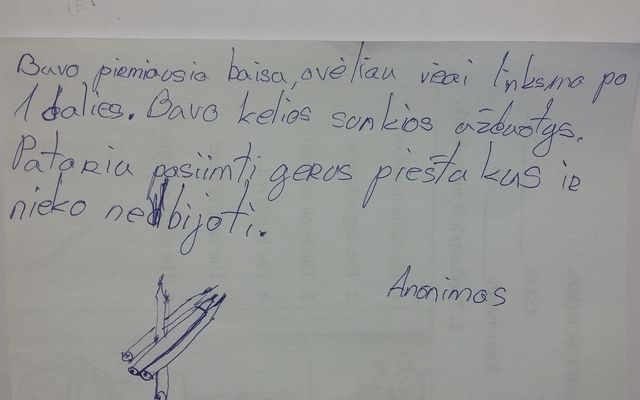 Buvo pirmiausia baisu, ovėliau vėai linksma po
1 dalies. Buvo kelios sunkios užduotys.
Patariu pasiimti gerus pieštukus ir
nieko nebijoti.
Anonimas